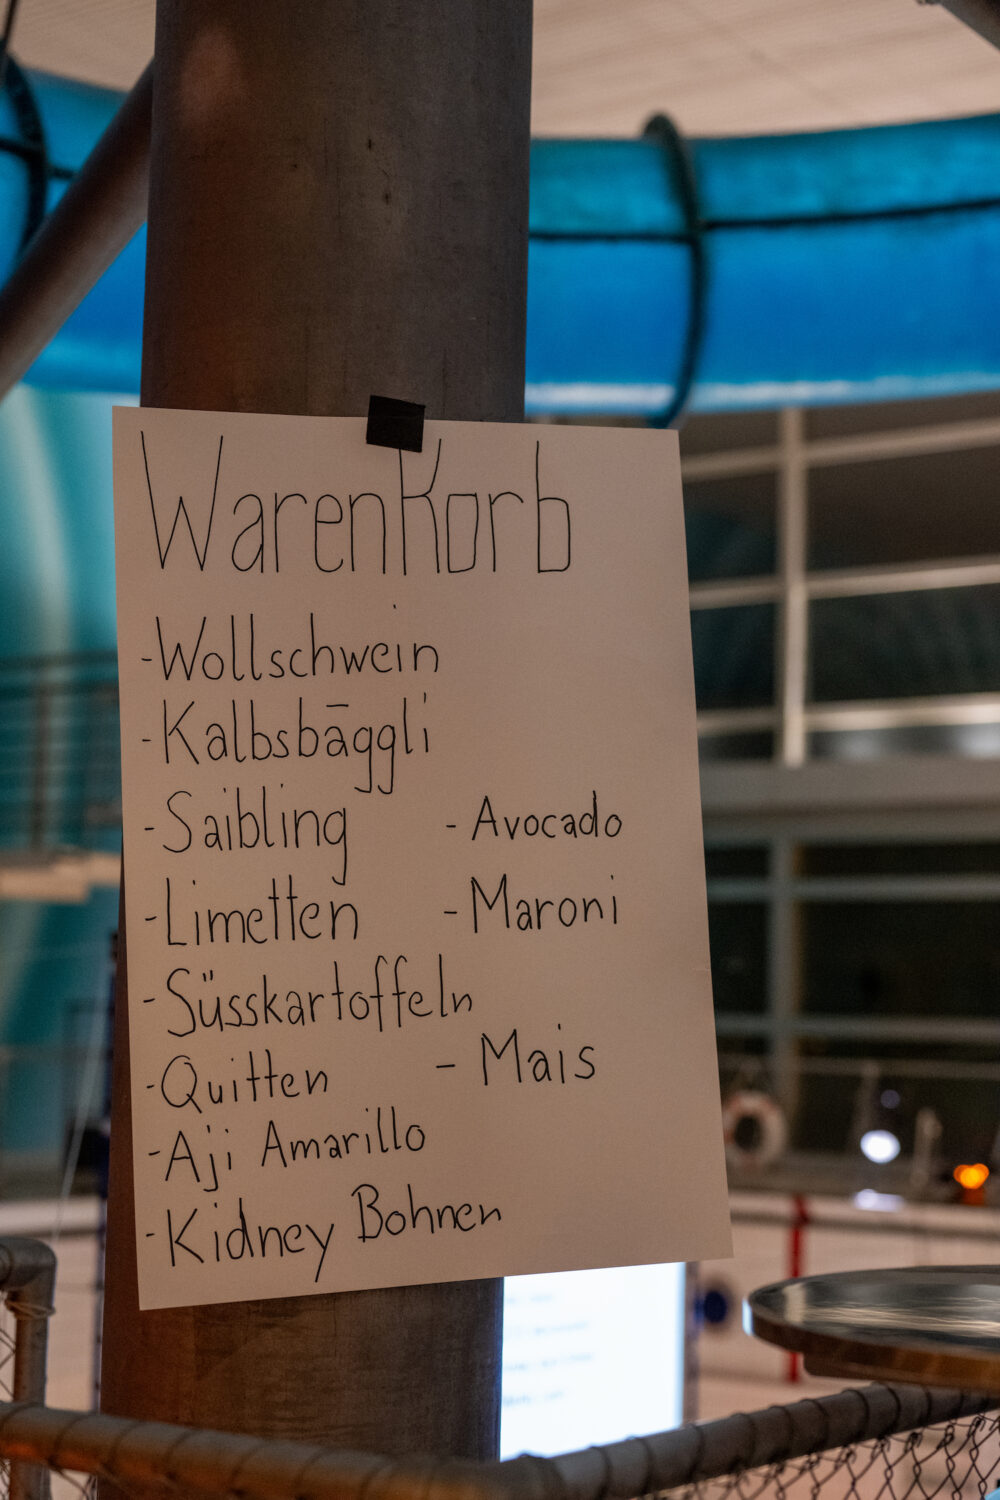 Warenkorb
- Wollschwein
- Kalbsbäggli
- Saibling - Avocado
- Limetten - Maroni
- Süsskartoffeln
- Quitten - Mais
- Aji Amarillo
- Kidney Bohnen